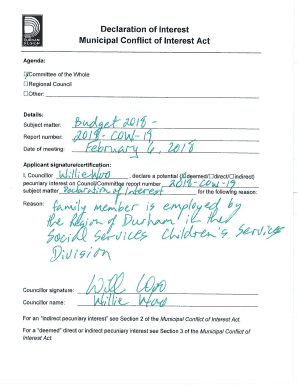 DURHAM
REGION
Declaration of Interest
Municipal Conflict of Interest Act
Agenda:
Committee of the Whole
Regional Council
Other:
Details:
Subject matter: Budget 2018 -
Report number: 2018-COW-19
Date of meeting: February 6, 2018
Applicant signature/certification:
I, Councillor Willie Woo, declare a potential (deemed/direct/indirect)
pecuniary interest on Council/Committee report number 2018-COW-19
subject matter Declaration of Interest for the following reason:
Reason: family member is employed by
the Region of Durham in the
Social Services Children's Services
Division
Councillor signature: Will Woo
Councillor name: Willie Woo
For an "indirect pecuniary interest" see Section 2 of the Municipal Conflict of Interest Act.
For a "deemed" direct or indirect pecuniary interest see Section 3 of the Municipal Conflict of
Interest Act.